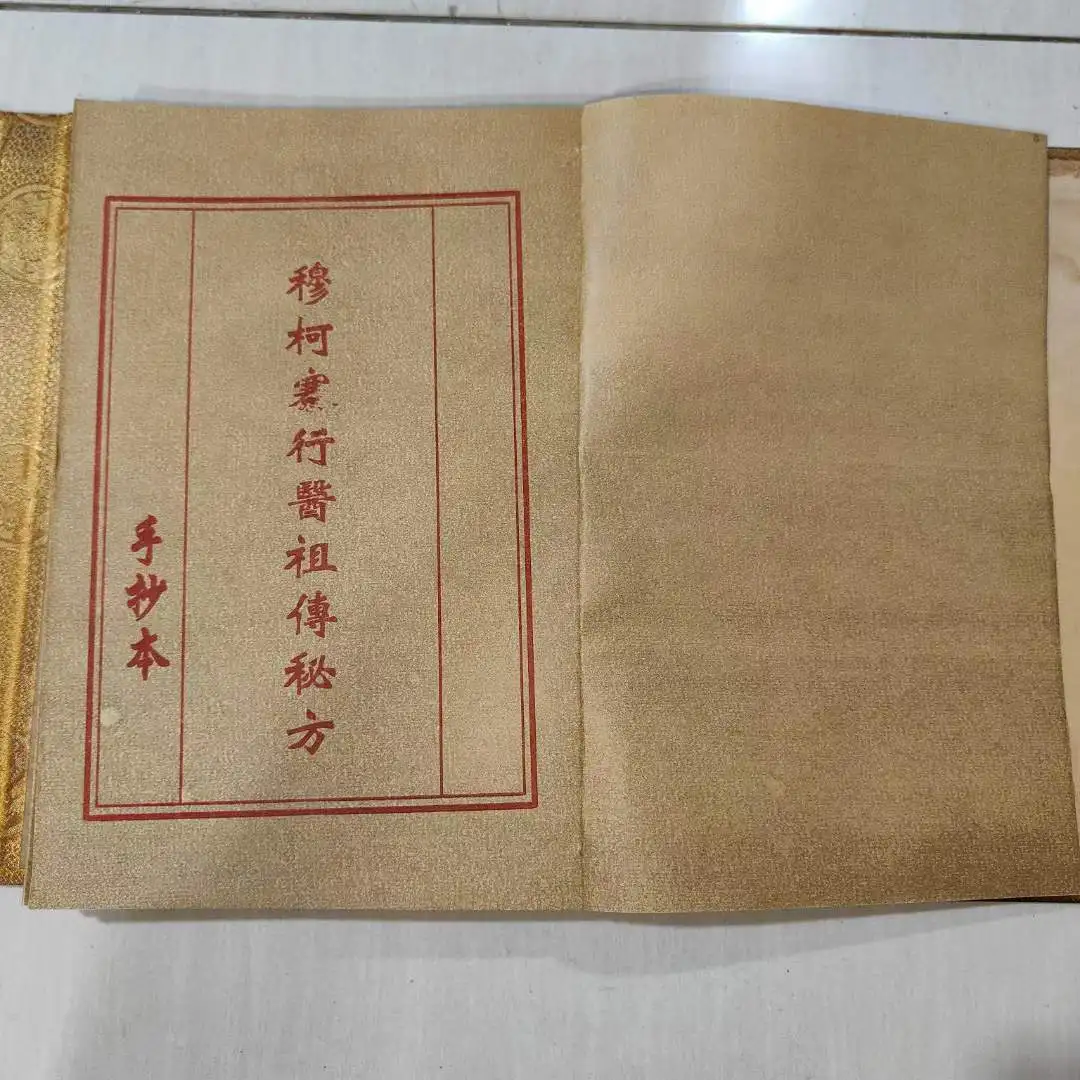 穆柯寨行醫祖傳秘方
手抄本